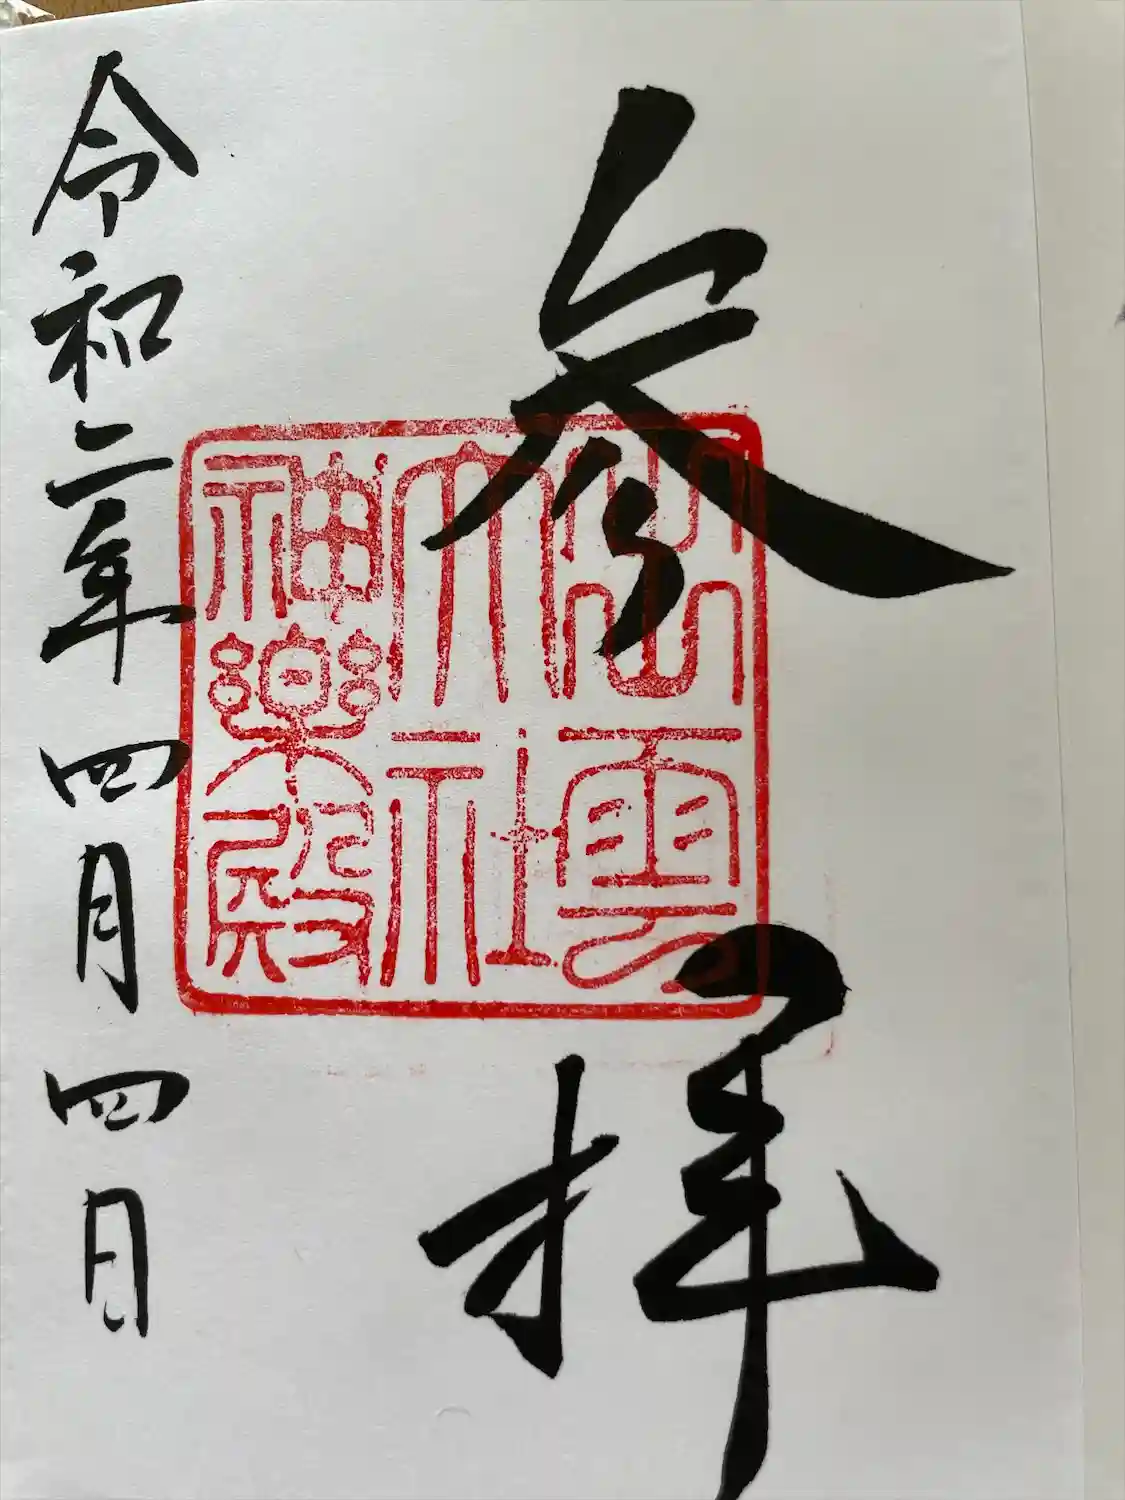 参拝
出雲
大社
神楽殿
令和二年四月四日